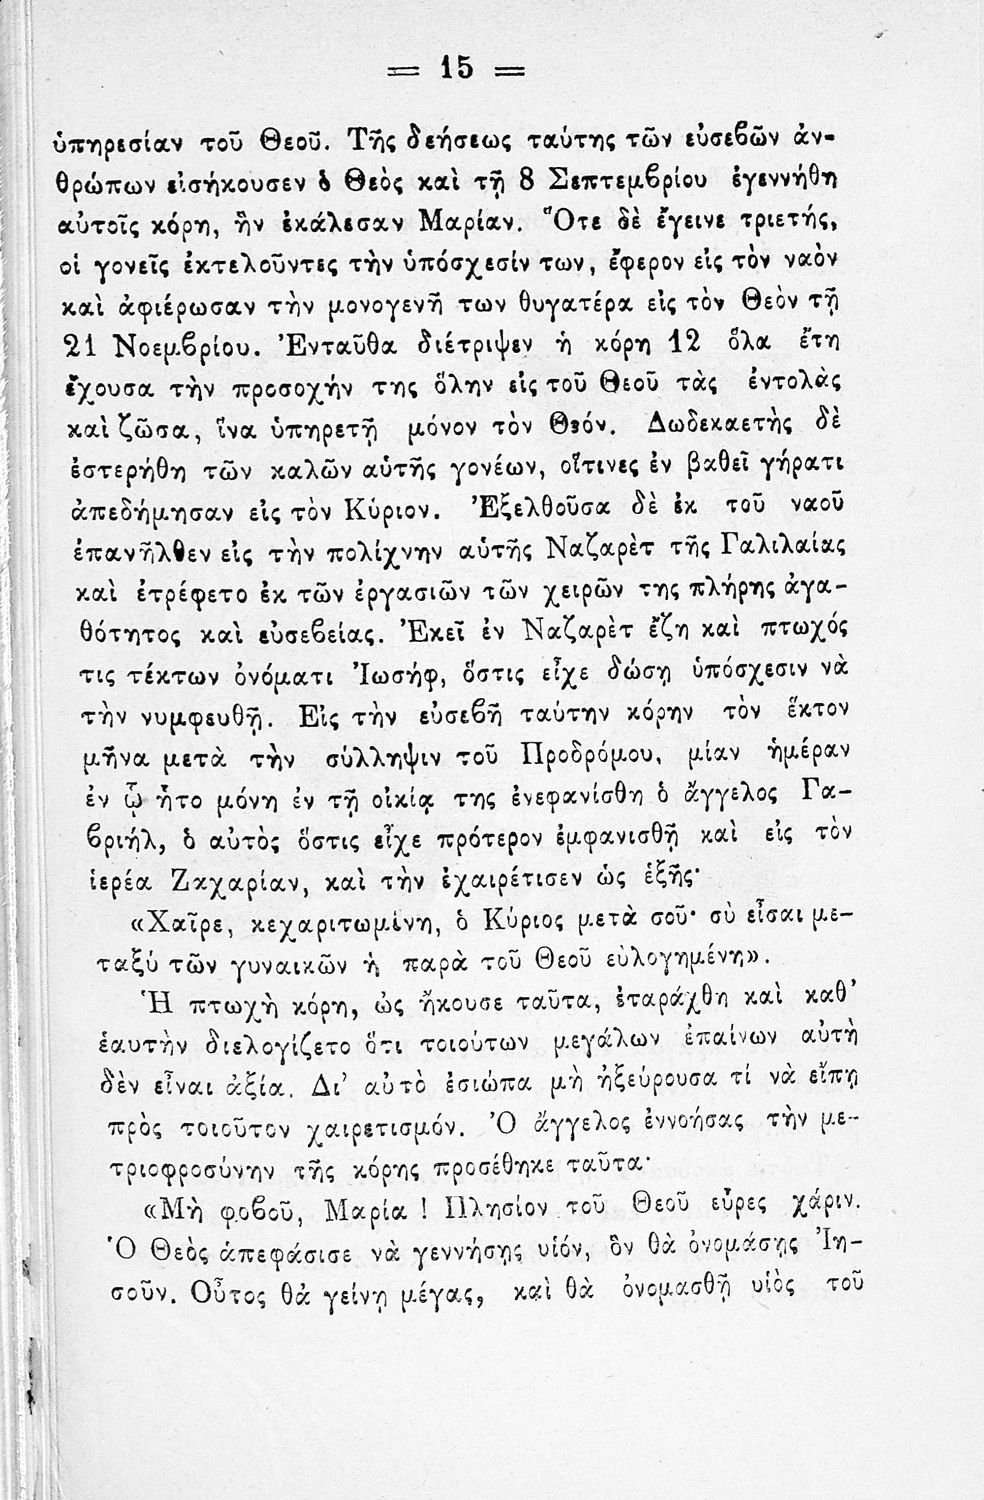 = 15 =
ὑπηρεσίαν τοῦ Θεοῦ. Τῆς δεήσεως ταύτης τῶν εὐσεβῶν ἀν-
θρώπων εἰσήκουσεν ὁ Θεὸς καὶ τῇ 8 Σεπτεμβρίου ἐγεννήθη
αὐτοῖς κόρη, ἣν ἐκάλεσαν Μαρίαν. Ὅτε δὲ ἔγεινε τριετής,
οἱ γονεῖς ἐκτελοῦντες τὴν ὑπόσχεσίν των, ἔφερον εἰς τὸν ναὸν
καὶ ἀφιέρωσαν τὴν μονογενῆ των θυγατέρα εἰς τὸν Θεὸν τῇ
21 Νοεμβρίου. Ἐνταῦθα διέτριψεν ἡ κόρη 12 ὅλα ἔτη
ἔχουσα τὴν προσοχήν της ὅλην εἰς τοῦ Θεοῦ τὰς ἐντολὰς
καὶ ζῶσα, ἵνα ὑπηρετῇ μόνον τὸν Θεόν. Δωδεκαετὴς δὲ
ἐστερήθη τῶν καλῶν αὑτῆς γονέων, οἵτινες ἐν βαθεῖ γήρατι
ἀπεδήμησαν εἰς τὸν Κύριον. Ἐξελθοῦσα δὲ ἐκ τοῦ ναοῦ
ἐπανῆλθεν εἰς τὴν πολίχνην αὑτῆς Ναζαρὲτ τῆς Γαλιλαίας
καὶ ἐτρέφετο ἐκ τῶν ἐργασιῶν τῶν χειρῶν της πλήρης ἀγα-
θότητος καὶ εὐσεβείας. Ἐκεῖ ἐν Ναζαρὲτ ἔζη καὶ πτωχός
τις τέκτων ὀνόματι Ἰωσήφ, ὅστις εἶχε δώσῃ ὑπόσχεσιν νὰ
τὴν νυμφευθῇ. Εἰς τὴν εὐσεβῆ ταύτην κόρην τὸν ἕκτον
μῆνα μετὰ τὴν σύλληψιν τοῦ Προδρόμου, μίαν ἡμέραν
ἐν ᾧ ἦτο μόνη ἐν τῇ οἰκίᾳ της ἐνεφανίσθη ὁ ἄγγελος Γα-
βριήλ, ὁ αὐτὸς ὅστις εἶχε πρότερον ἐμφανισθῇ καὶ εἰς τὸν
ἱερέα Ζαχαρίαν, καὶ τὴν ἐχαιρέτισεν ὡς ἑξῆς·
«Χαῖρε, κεχαριτωμένη, ὁ Κύριος μετὰ σοῦ· σὺ εἶσαι με-
ταξύ τῶν γυναικῶν ἡ παρὰ τοῦ Θεοῦ εὐλογημένη».
Ἡ πτωχὴ κόρη, ὡς ἤκουσε ταῦτα, ἐταράχθη καὶ καθ᾽
ἑαυτὴν διελογίζετο ὅτι τοιούτων μεγάλων ἐπαίνων αὐτὴ
δὲν εἶναι ἀξία. Δι᾽ αὐτὸ ἐσιώπα μὴ ἠξεύρουσα τί νὰ εἴπῃ
πρὸς τοιοῦτον χαιρετισμόν. Ὁ ἄγγελος ἐννοήσας τὴν με-
τριοφροσύνην τῆς κόρης προσέθηκε ταῦτα·
«Μὴ φοβοῦ, Μαρία ! Πλησίον τοῦ Θεοῦ εὗρες χάριν.
Ὁ Θεὸς ἀπεφάσισε νὰ γεννήσῃς υἱόν, ὃν θὰ ὀνομάσῃς Ἰη-
σοῦν. Οὗτος θὰ γείνῃ μέγας, καὶ θὰ ὀνομασθῇ υἱὸς τοῦ